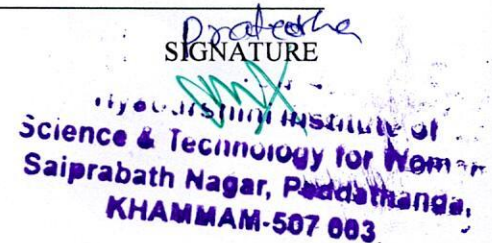 Prateeksha
SIGNATURE
Institute of
Science & Technology for Women
Saiprabath Nagar, Peddathanda,
KHAMMAM-507 003